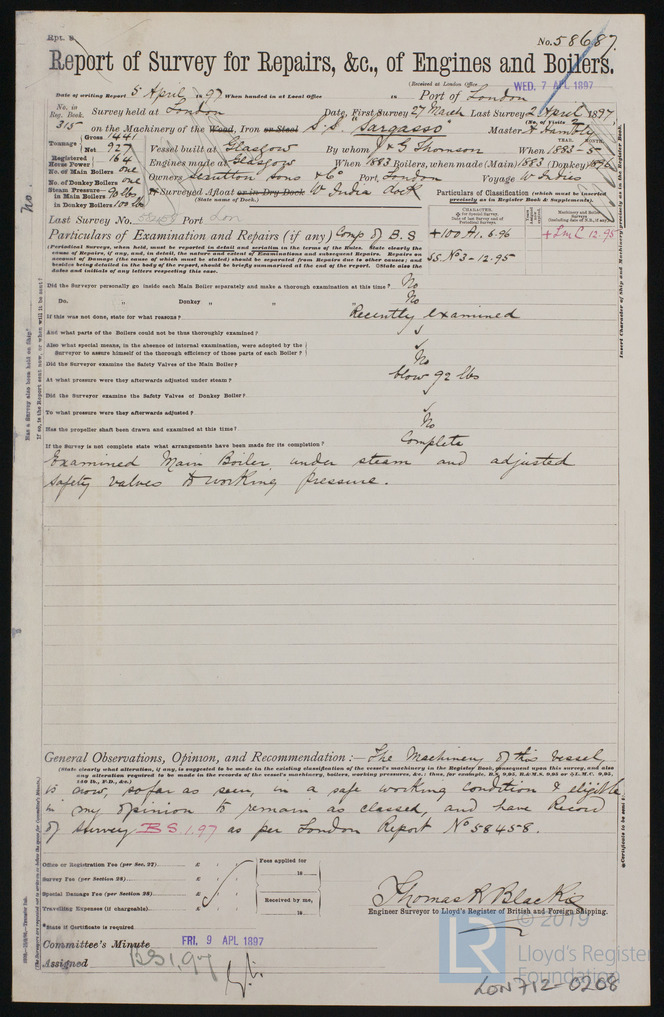 Rpt. 8.
No. 58687.
Report of Survey for Repairs, &c., of Engines and Boilers.
(Received at London Office WED. 7 APL 1897
Date of writing Report 5 April 1897 When handed in at Local Office 18 Port of London
No. in Reg. Book.
315
Survey held at London Date, First Survey 27 March Last Survey 2 April 1897
(No. of Visits
on the Machinery of the Wood, Iron or Steel S.S. Sargasso Master A Hambly
Tonnage Gross 1441
Net 927
Vessel built at Glasgow By whom J & G Thomson When 1883-5
YEAR. MONTH.
Registered Horse Power 164
Engines made at Glasgow When 1883 Boilers, when made (Main) 1883 (Donkey) 1896
No. of Main Boilers one
Owners Scrutton Sons & Co Port London Voyage W Indies
No. of Donkey Boilers one
Steam Pressure in Main Boilers 90 lbs
in Donkey Boilers 100 lbs
If Surveyed Afloat or in Dry Dock W India dock
(State name of Dock.)
Particulars of Classification (which must be inserted precisely as in Register Book & Supplements).
Last Survey No. Port Lon
Particulars of Examination and Repairs (if any) Comp of B.S
(Periodical Surveys, when held, must be reported in detail and seriatim in the terms of the Rules. State clearly the cause of Repairs, if any, and, in detail, the nature and extent of Examinations and subsequent Repairs. Repairs on account of Damage (the cause of which must be stated) should be separated from Repairs due to other causes; and besides being detailed in the body of the report, should be briefly summarised at the end of the report. State also the dates and initials of any letters respecting this case.
CHARACTER.
+100 A1. 6.96
SS No 3 - 12.95
+ LMC 12.95
Did the Surveyor personally go inside each Main Boiler separately and make a thorough examination at this time? No
Do. " Donkey " " No
If this was not done, state for what reasons? Recently examined
And what parts of the Boilers could not be thoroughly examined?
Also what special means, in the absence of internal examination, were adopted by the Surveyor to assure himself of the thorough efficiency of those parts of each Boiler?
Did the Surveyor examine the Safety Valves of the Main Boiler? No
At what pressure were they afterwards adjusted under steam? blow 92 lbs
Did the Surveyor examine the Safety Valves of Donkey Boiler?
To what pressure were they afterwards adjusted?
Has the propeller shaft been drawn and examined at this time? No
If the Survey is not complete state what arrangements have been made for its completion? Complete
Examined Main Boiler under steam and adjusted
safety valves to working pressure.
General Observations, Opinion, and Recommendation:— The Machinery of this vessel
(State clearly what alteration, if any, is suggested to be made in the existing classification of the vessel's machinery in the Register Book, consequent upon this survey, and also any alteration required to be made in the records of the vessel's machinery, boilers, working pressures, &c.; thus, for example, B.S. 9,95, B.&M.S. 9,95 or L.M.C. 9,95, 140 lb., F.D., &c.)
is now, so far as seen, in a safe working condition & eligible
in my opinion to remain as classed, and have Record
of survey BS 1.97 as per London Report No 58458.
Office or Registration Fee (per Sec. 27) £
Survey Fee (per Section 28) £
Special Damage Fee (per Section 28) £
Travelling Expenses (if chargeable) £
Fees applied for
18
Received by me,
18
Thomas R Blackie
Engineer Surveyor to Lloyd's Register of British and Foreign Shipping.
*State if Certificate is required
Committee's Minute FRI. 9 APL 1897
Assigned BS 1,97
© 2019
LR
Lloyd's Register
Foundation
LON712-0208